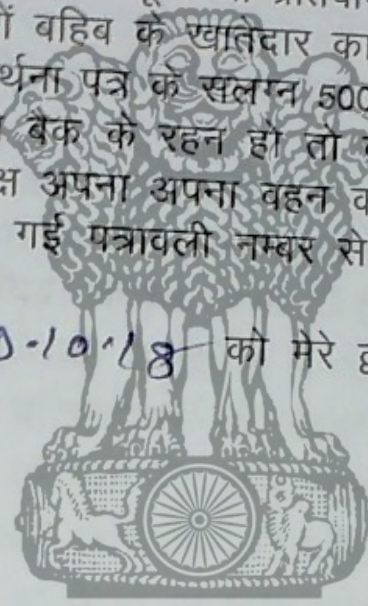 ों वहिव के खातेदार का
र्थना पत्र के सलग्न 500
बैंक के रहन हो तो
क्ष अपना अपना वहन व
गई पत्रावली नम्बर से
-10-18 को मेरे